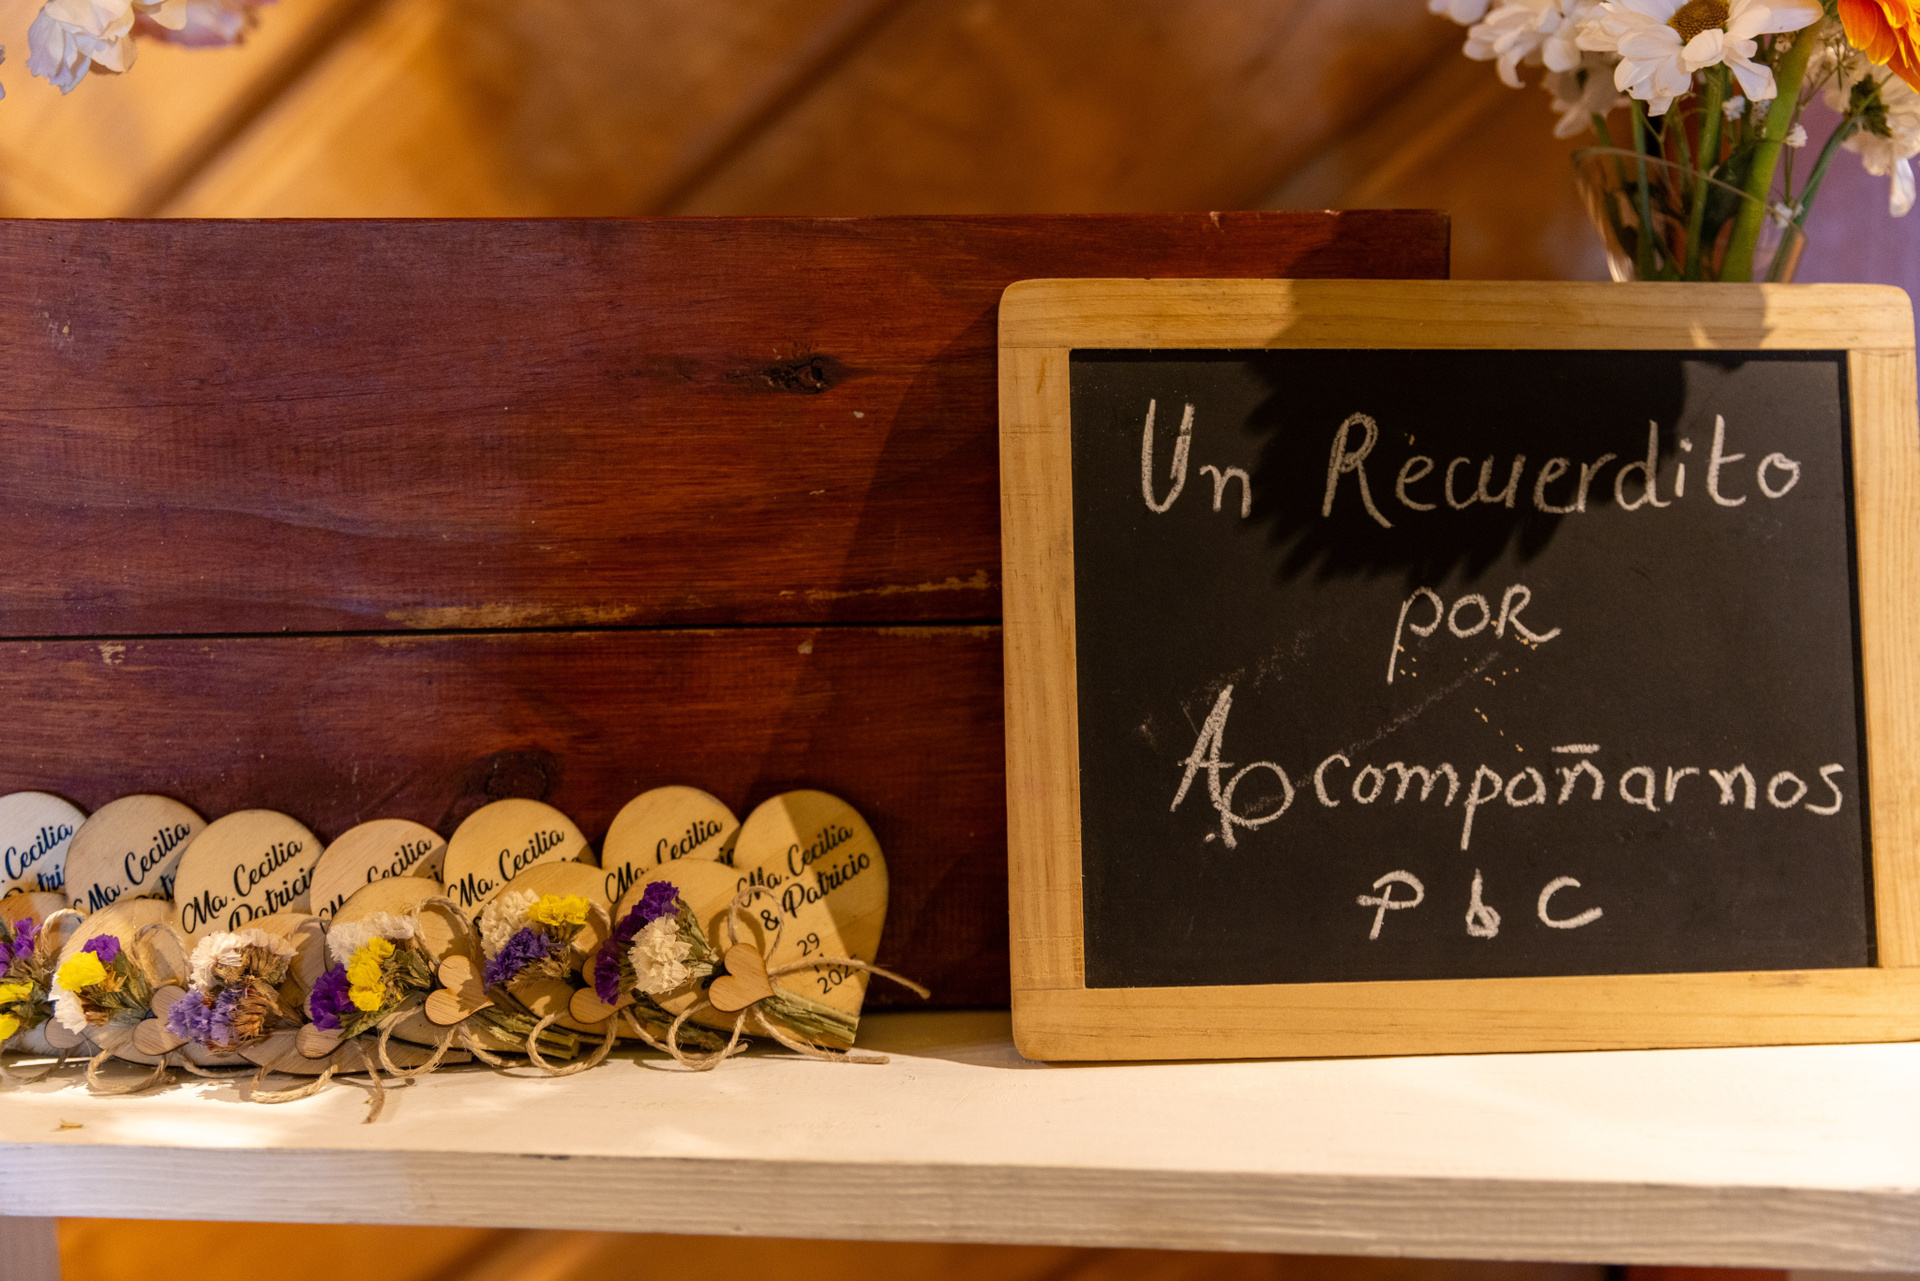 Un Recuerdito
por
Acompañarnos
P & C
Ma. Cecilia
& Patricio
29
Ma. Cecilia
Ma. Cecilia
Ma. Cecilia
Patricio
Ma. Cecilia
Cecilia
Cecilia